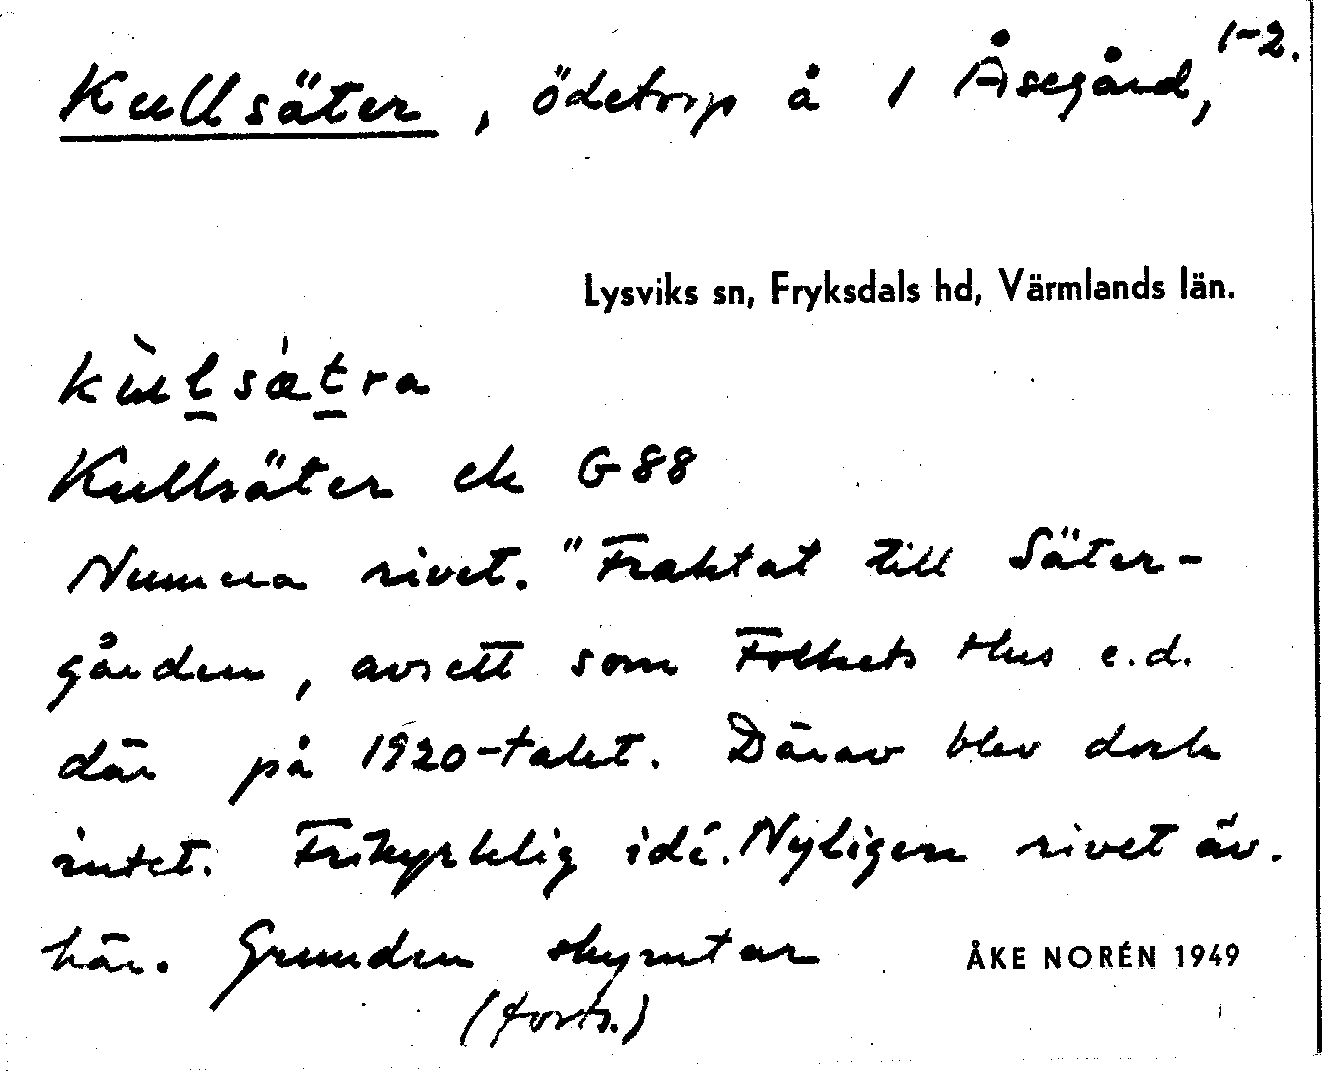 Kullsäter, ödetorp å 1 Åsegård, 1-2.
Lysviks sn, Fryksdals hd, Värmlands län.
kùlsætra
Kullsäter ek G88
Numera rivet. "Fraktat till Säter-
gården, avsett som Folkets Hus e.d.
där på 1920-talet. Därav blev dock
intet. Frikyrklig idé. Nyligen rivet äv.
här. Grunden skymtar
ÅKE NORÉN 1949
(forts.)